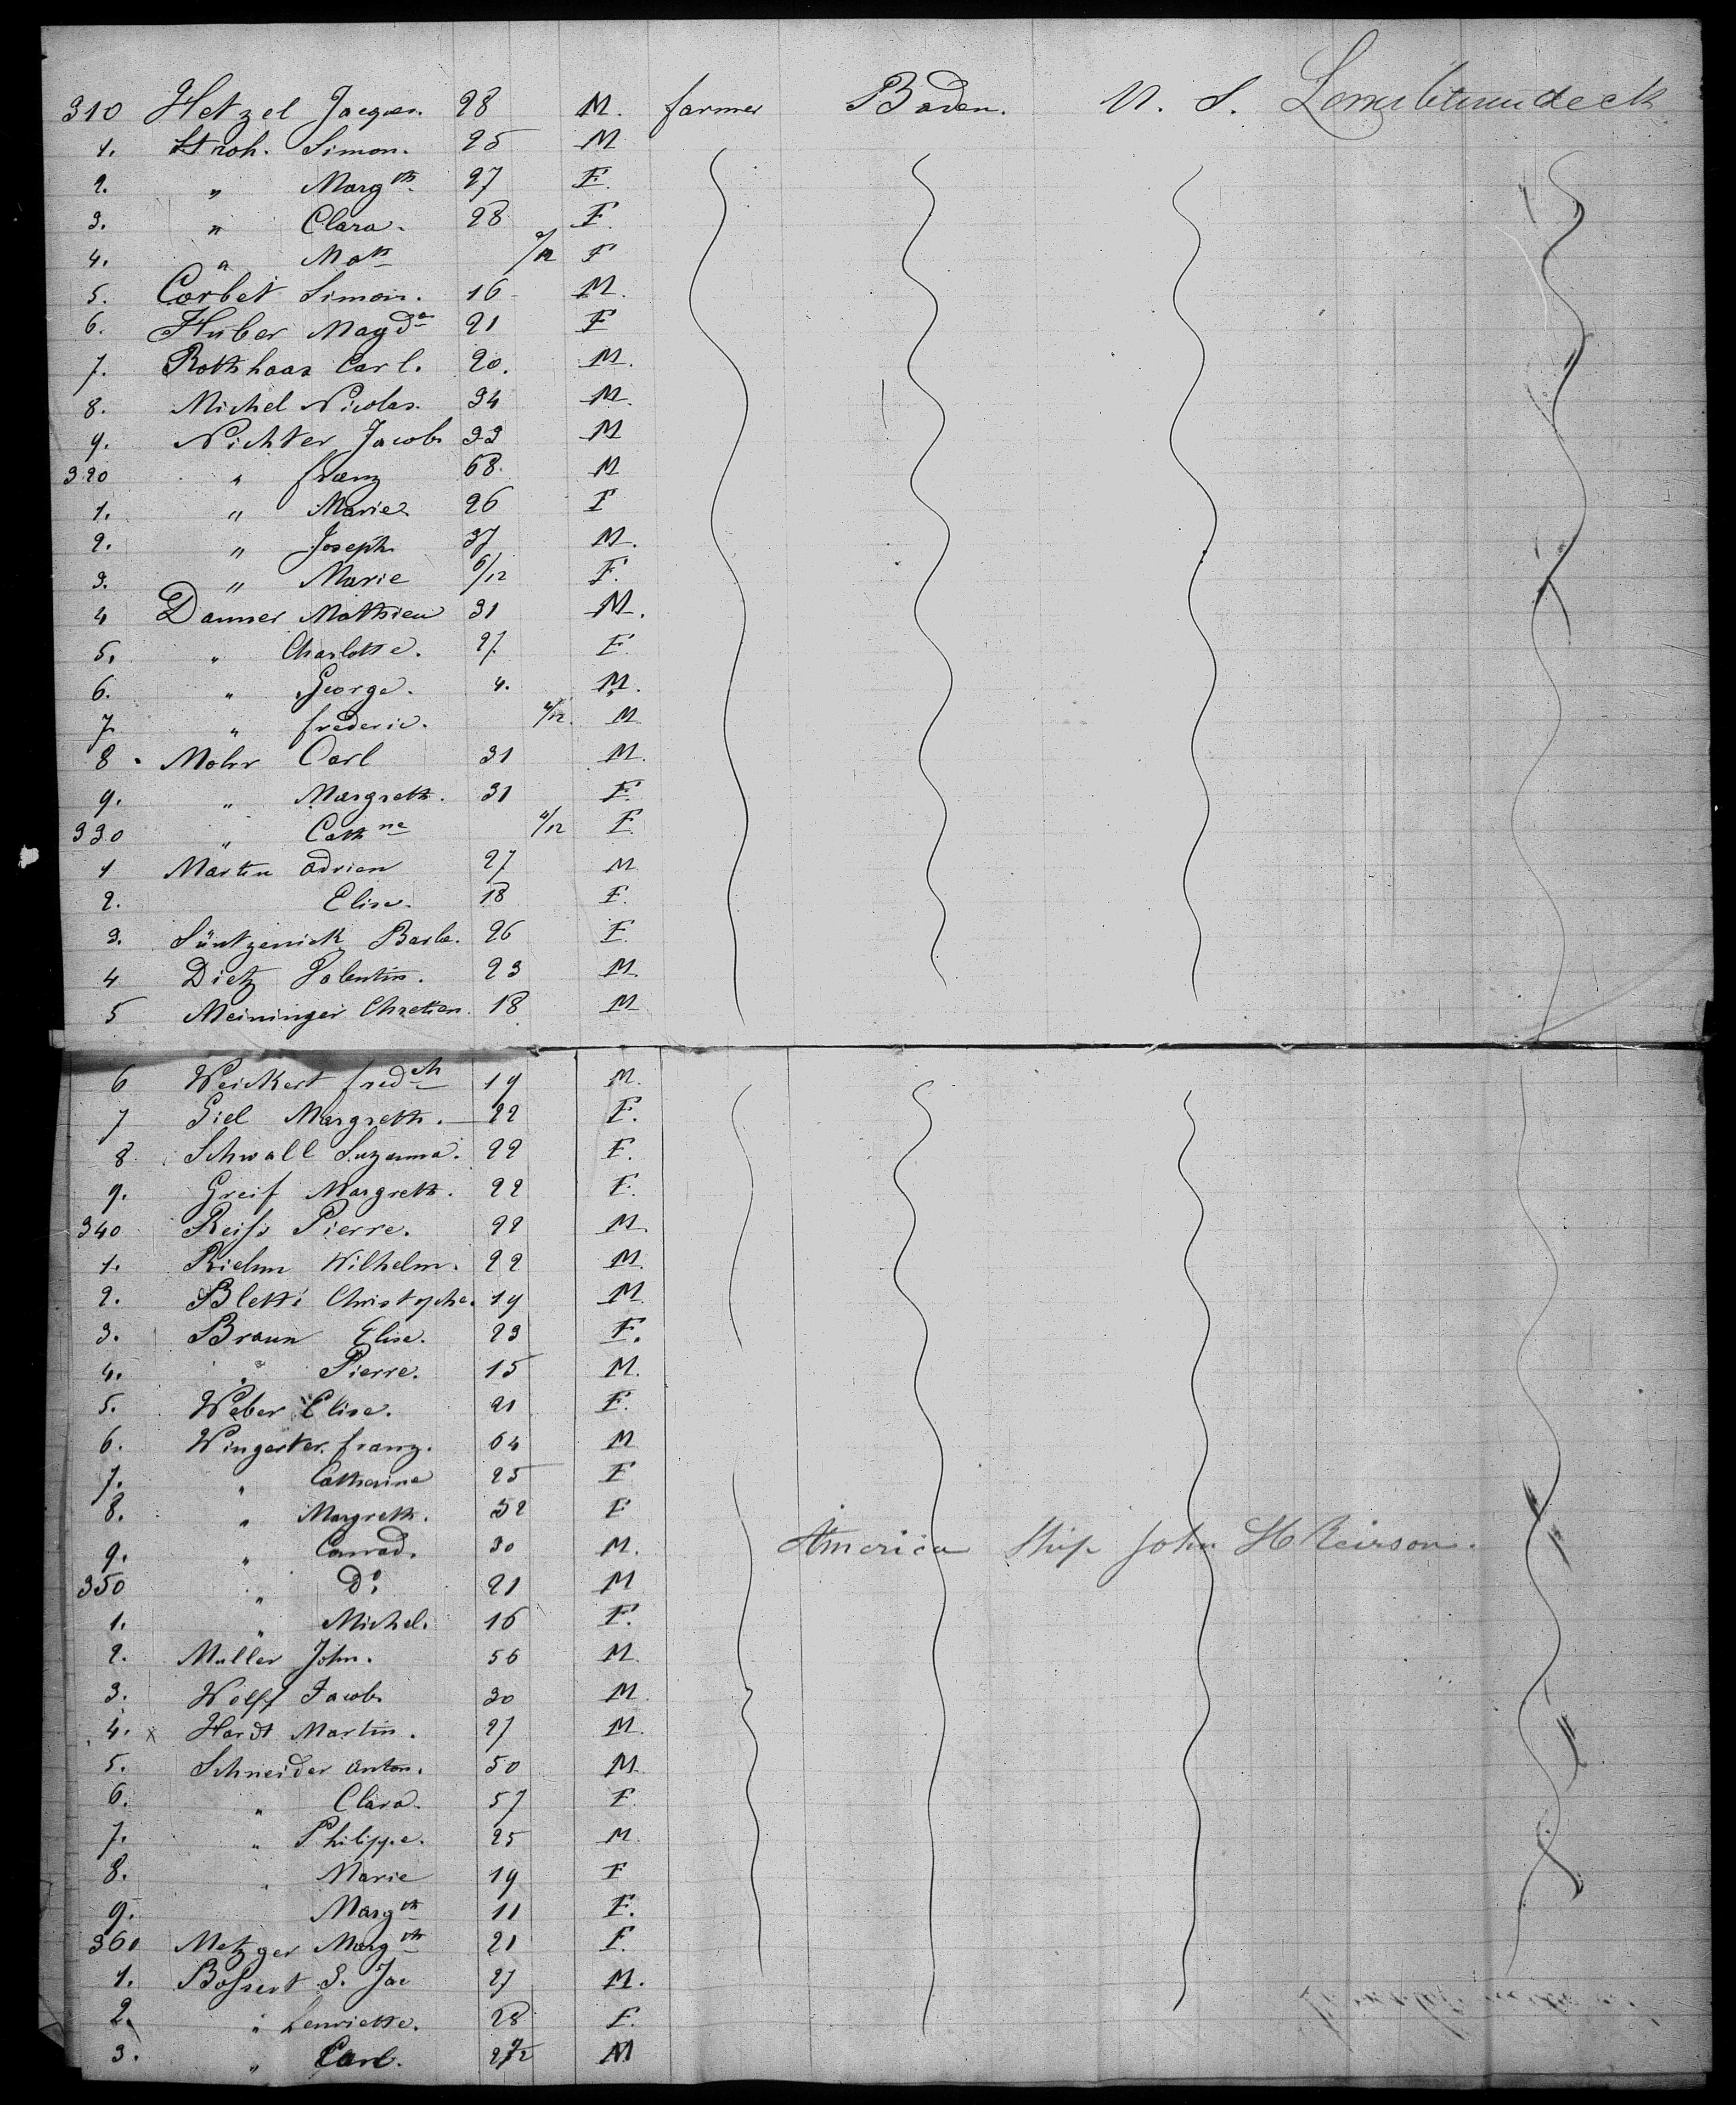 310 Hetzel Jacques. 28 M. farmer Baden. U. S.
1. Stroh. Simon. 25 M
2. " Margth 27 F.
3. " Clara. 28 F.
4. " /12 F
5. Corbet Simon. 16 M.
6. Huber Magda 21 F
7. Rothhaas Carl. 20. M.
8. Michel Nicolas. 34 M.
9. Nichter Jacob 33 M
320 " franz 68. M
1. " Marie 26 F
2. " Joseph 37 M.
3. " Marie 6/12 F.
4 Danner Mathieu 31 M.
5. " Charlotte. 27. F.
6. " George. 4. M.
7. " frederic. /12. M
8 . Mohr Carl 31 M.
9. " Margreth. 31 F.
330 " Cathne /12 F
1 Martin adrien 27 M
2. Elise. 18 F.
3. Barba. 26 F.
4 Dietz Valentin. 23 M.
5 Meininger Chretien. 18 M
6 Weickert fredch 19 M.
7 Giel Margreth. 22 F.
8 Schwall Suzanna. 22 F.
9. Greif Margreth. 22 F.
340 Reifs Pierre. 22 M.
1. Riehm Wilhelm. 22 M.
2. Bletti Christophe. 19 M.
3. Braun Elise. 23 F.
4. " Pierre. 15 M.
5. Weber Elise. 21 F.
6. Wingerter. franz. 64 M
7. " Catherine 25 F
8. " Margreth. 32 F
9. " Conrad. 30 M. America Ship John H
350 " Do. 21 M
1. " Michel. 16 F.
2. Muller John. 56 M.
3. Wolff Jacob 30 M.
4. x Hardt Martin. 27 M.
5. Schneider anton. 50 M.
6. " Clara. 57 F.
7. " Philippe. 25 M.
8. " Marie 19 F
9. " Margth 11 F.
360 Metzger Margth 21 F.
1. Bofsert S. Jac 27 M.
2. " henriette. 28 F.
3. " Carl. M